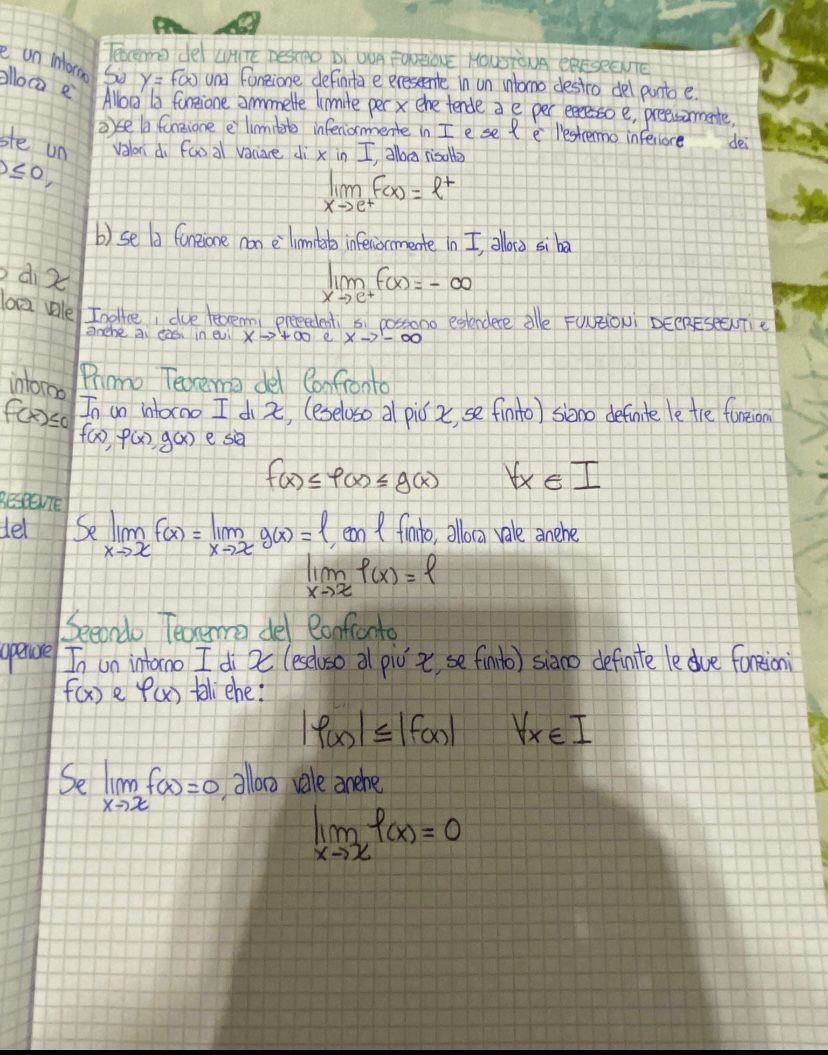 e un intorno
allora è
ste un
≤0,
di x
lora vale
intorno
f(x)≤0
RESCENTE
del
uperiore
Teorema del LIMITE DESTRO DI UNA FUNZIONE MONOTÒNA CRESCENTE
Sia y = f(x) una funzione definita e crescente in un intorno destro del punto c.
Allora la funzione ammette limite per x che tende a c per eccesso e, precisamente,
a) se la funzione è limitata inferiormente in I e se l è l'estremo inferiore dei
valori di f(x) al variare di x in I, allora risulta
lim f(x) = l⁺
x→c⁺
b) se la funzione non è limitata inferiormente in I, allora si ha
lim f(x) = - ∞
x→c⁺
Inoltre i due teoremi precedenti si possono estendere alle FUNZIONI DECRESCENTI e
anche ai casi in cui x→+∞ e x→-∞
Primo Teorema del Confronto
In un intorno I di x, (escluso al più x, se finito) siano definite le tre funzioni
f(x), φ(x), g(x) e sia
f(x) ≤ φ(x) ≤ g(x) ∀x ∈ I
Se lim f(x) = lim g(x) = l, con l finito, allora vale anche
x→x x→x
lim φ(x) = l
x→x
Secondo Teorema del Confronto
In un intorno I di x (escluso al più x, se finito) siano definite le due funzioni
f(x) e φ(x) tali che:
|φ(x)| ≤ |f(x)| ∀x ∈ I
Se lim f(x) = 0, allora vale anche
x→x
lim φ(x) = 0
x→x